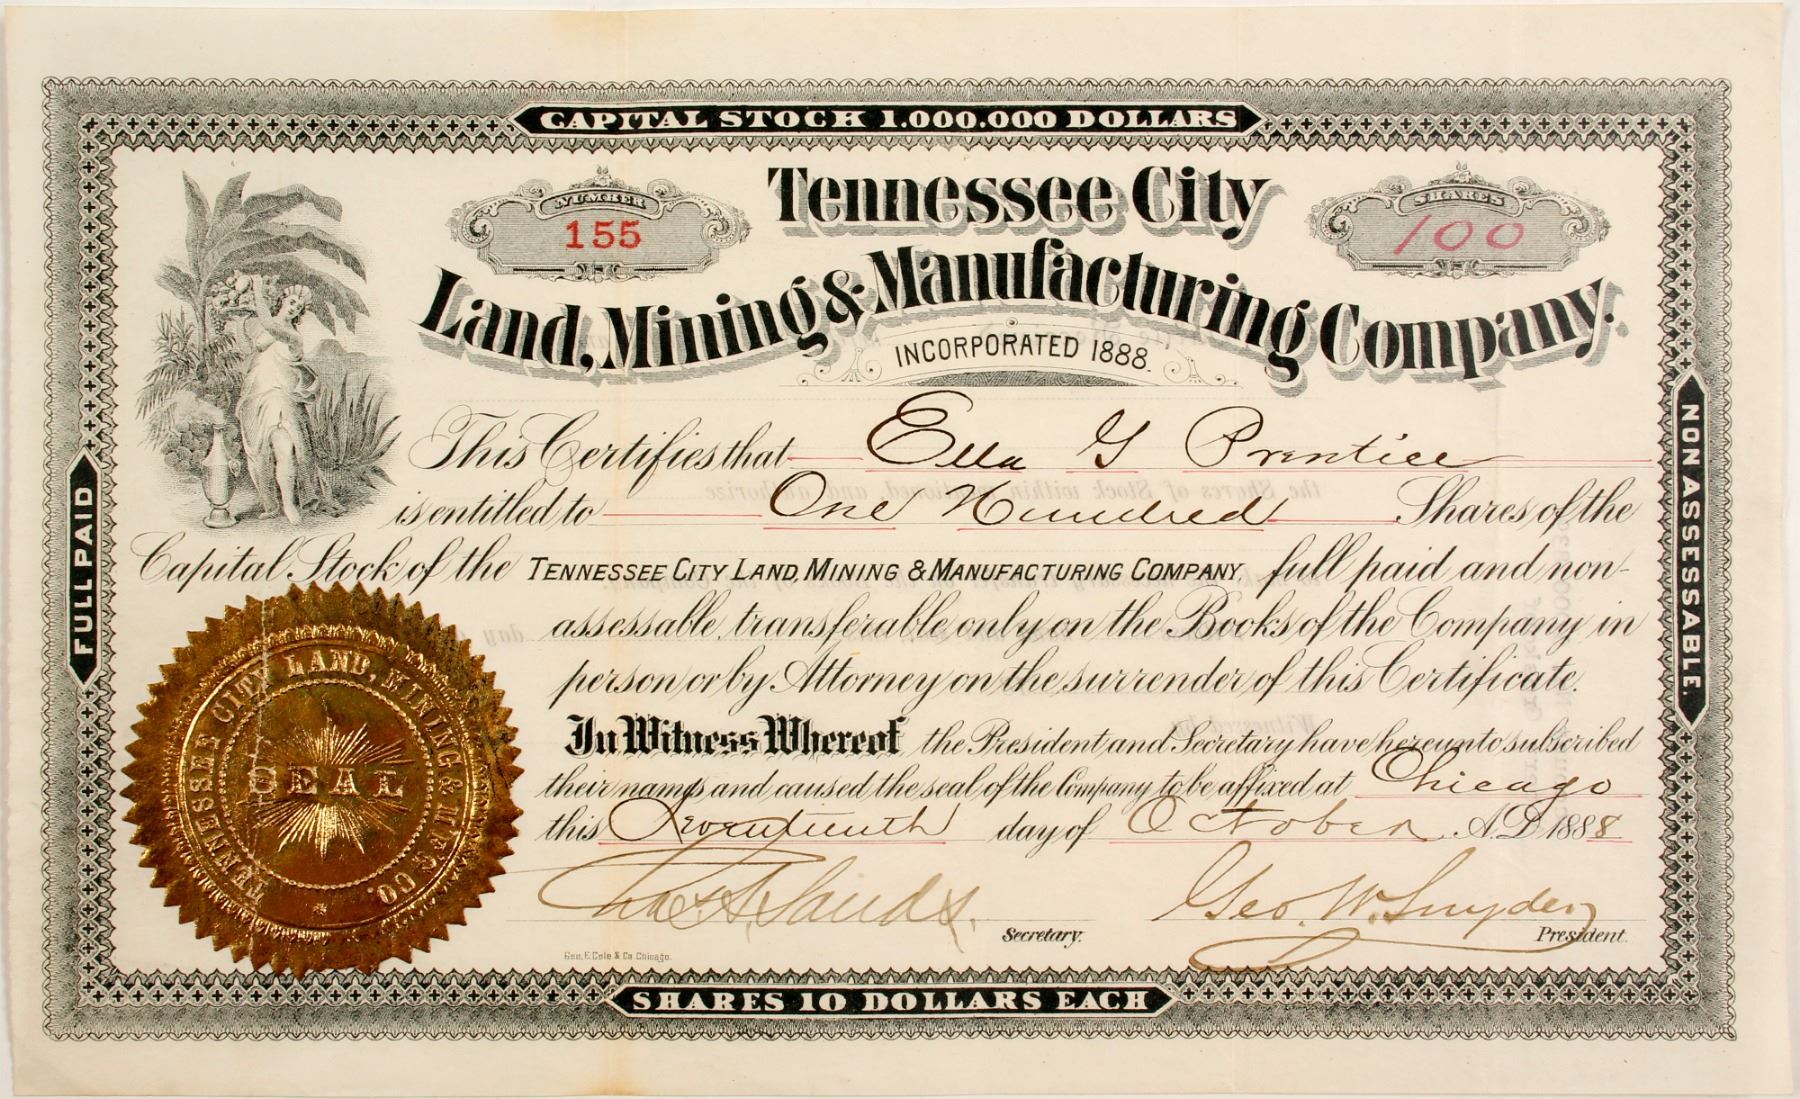 CAPITAL STOCK 1.000.000 DOLLARS
NUMBER
155
Tennessee City
SHARES
100
Land, Mining & Manufacturing Company.
INCORPORATED 1888.
This Certifies that Ella G Prentice
is entitled to One Hundred Shares of the
Capital Stock of the TENNESSEE CITY LAND, MINING & MANUFACTURING COMPANY, full paid and non-
assessable, transferable only on the Books of the Company in
person or by Attorney on the surrender of this Certificate.
In Witness Whereof the President and Secretary have hereunto subscribed
their names and caused the seal of the Company to be affixed at Chicago
this Seventeenth day of October A.D. 1888
Sands. Geo. W. Snyder
Secretary. President.
Geo. E. Cole & Co. Chicago.
SHARES 10 DOLLARS EACH
FULL PAID
NON ASSESSABLE.
TENNESSEE CITY LAND, MINING & M'F'G CO.
SEAL